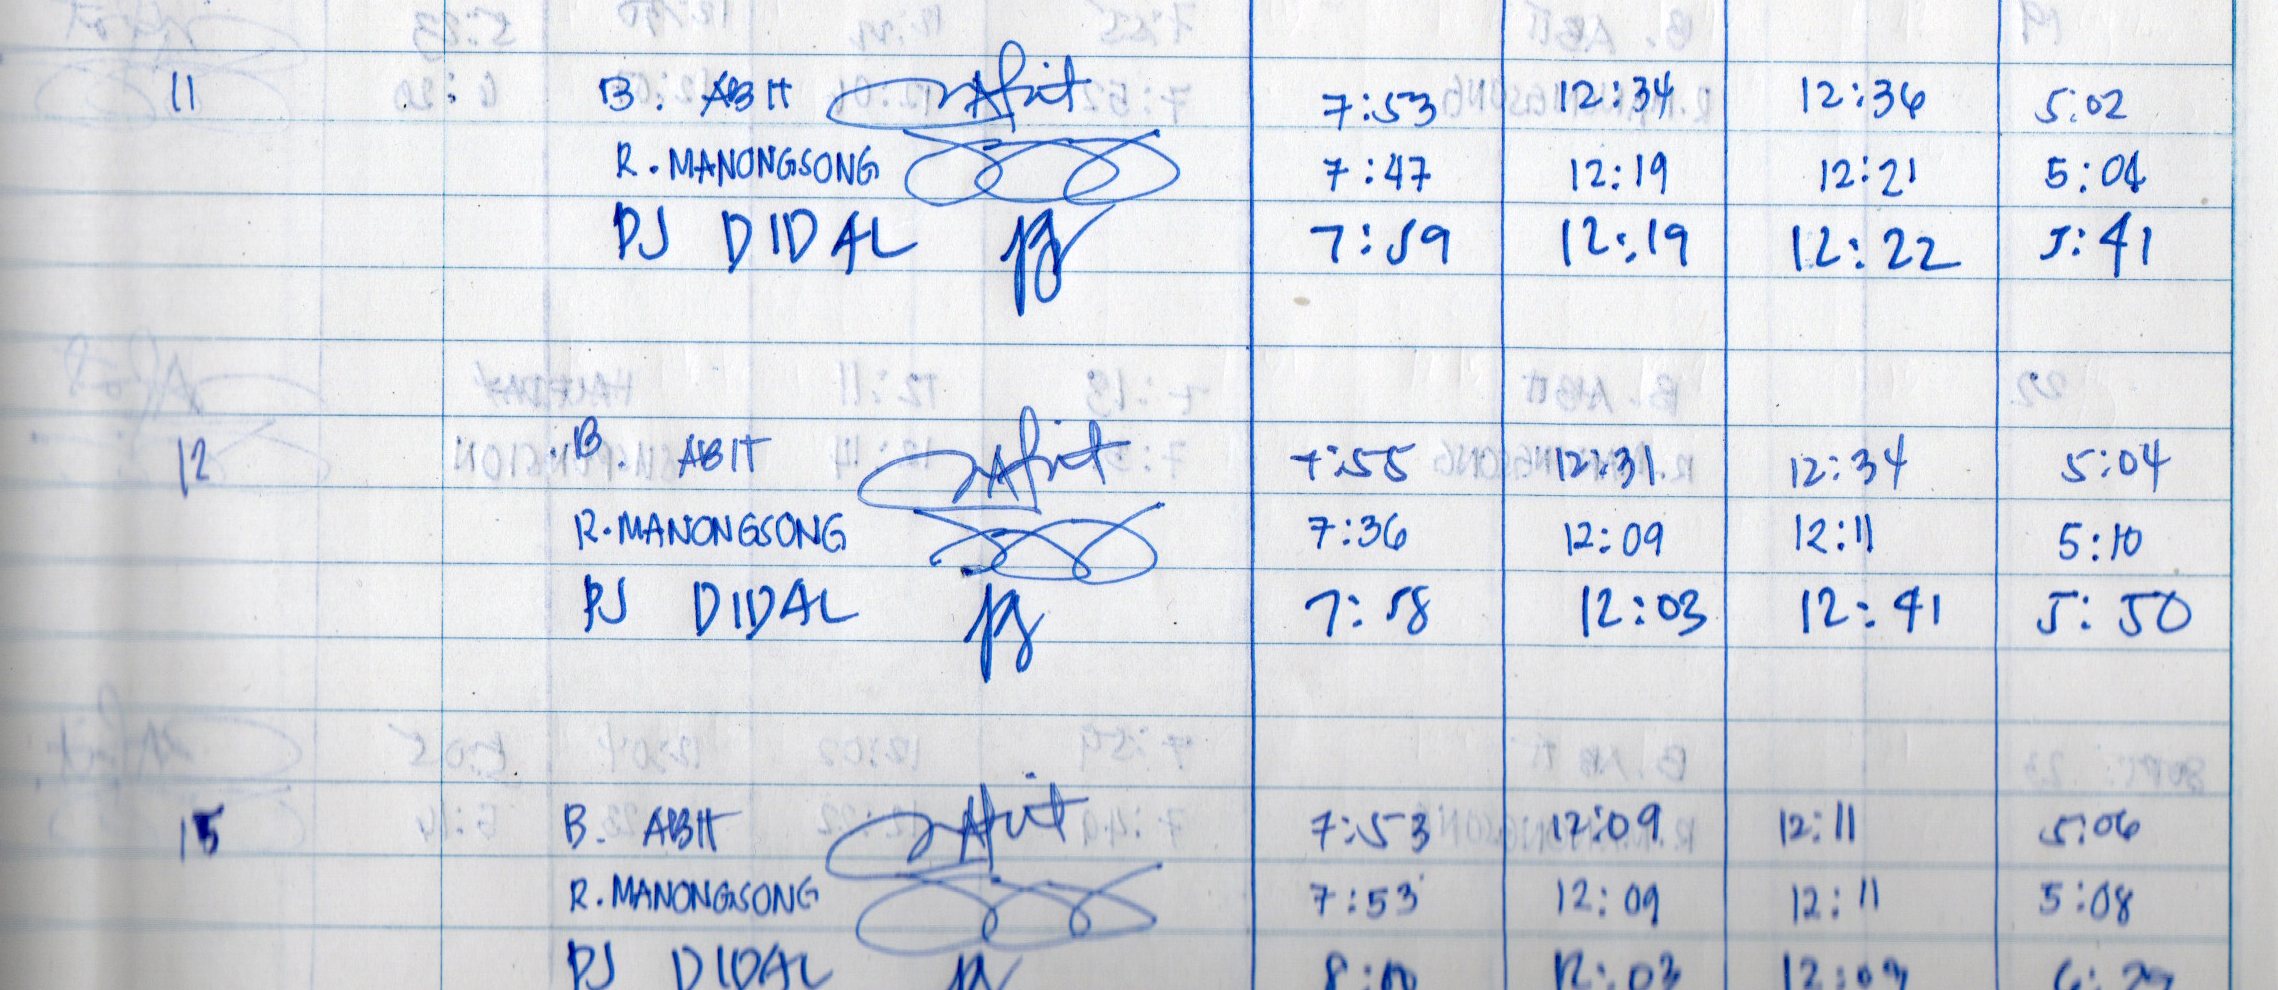 11 B. ABIT 7:53 12:34 12:36 5:02
R. MANONGSONG 7:47 12:19 12:21 5:04
PJ DIDAL 7:59 12:19 12:22 5:41
12 B. ABIT 7:55 12:31 12:34 5:04
R. MANONGSONG 7:36 12:09 12:11 5:10
PJ DIDAL 7:58 12:03 12:41 5:50
15 B. ABIT 7:53 12:09 12:11 5:06
R. MANONGSONG 7:53 12:09 12:11 5:08
PJ DIDAL 12:03